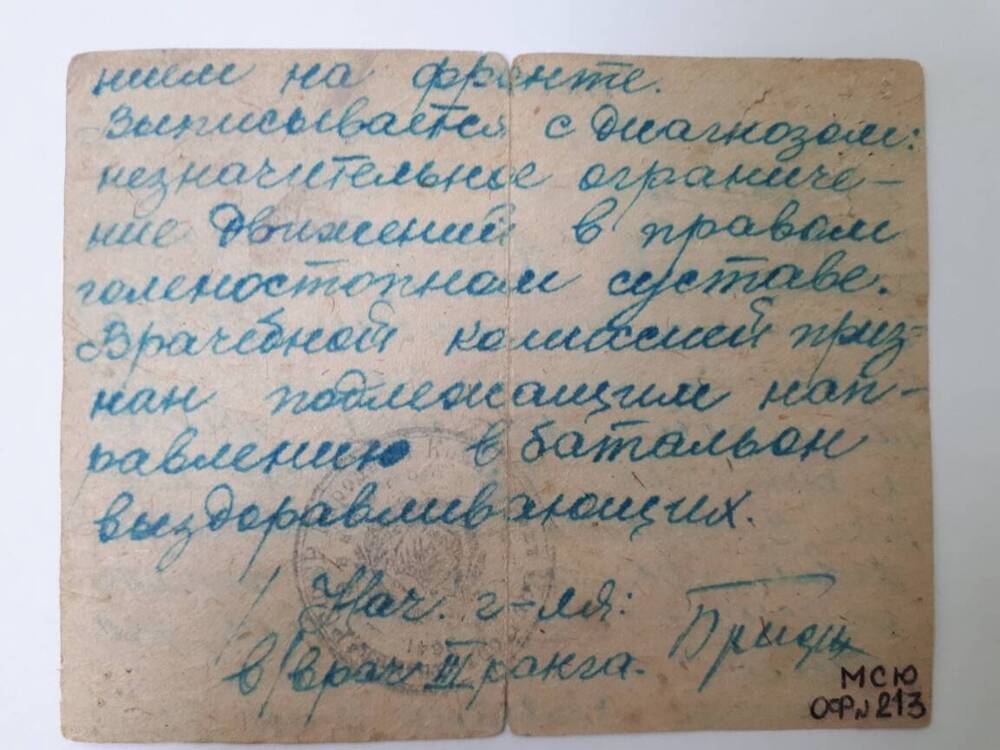 нием на фронте.
Выписывается с диагнозом:
незначительное ограниче-
ние движений в правом
голеностопном суставе.
Врачебной комиссией приз-
нан подлежащим нап-
равлению в батальон
выздоравливающих.
Нач. г-ля:
в/врач III ранга.
МСЮ
ОФ№213